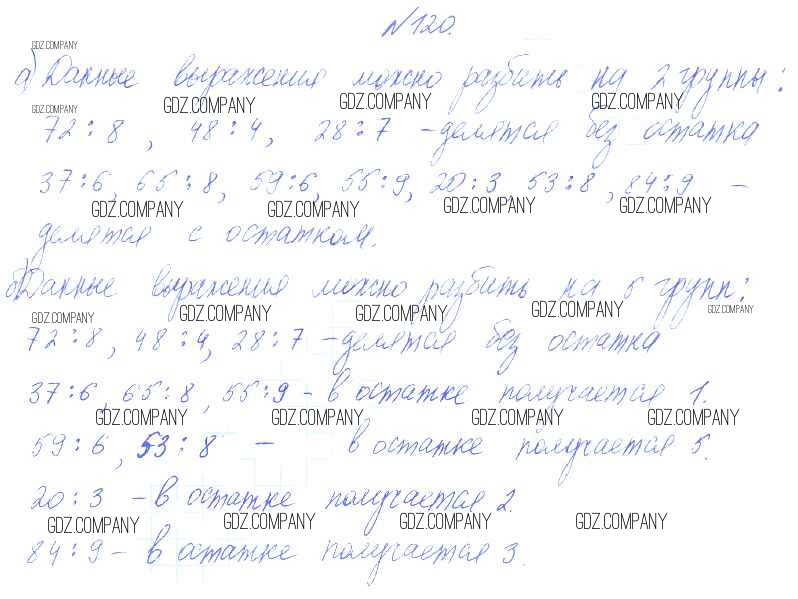 №120.
GDZ.COMPANY
а) Данные выражения можно разбить на 2 группы:
GDZ.COMPANY GDZ.COMPANY GDZ.COMPANY GDZ.COMPANY
72:8, 48:4, 28:7 - делятся без остатка
37:6, 65:8, 59:6, 55:9, 20:3, 53:8, 84:9 -
GDZ.COMPANY GDZ.COMPANY GDZ.COMPANY GDZ.COMPANY
делятся с остатком.
б) Данные выражения можно разбить на 5 групп:
GDZ.COMPANY GDZ.COMPANY GDZ.COMPANY GDZ.COMPANY GDZ.COMPANY
72:8, 48:4, 28:7 - делятся без остатка
37:6, 65:8, 55:9 - в остатке получается 1.
GDZ.COMPANY GDZ.COMPANY GDZ.COMPANY GDZ.COMPANY
59:6, 53:8 - в остатке получается 5.
20:3 - в остатке получается 2.
GDZ.COMPANY GDZ.COMPANY GDZ.COMPANY GDZ.COMPANY
84:9 - в остатке получается 3.